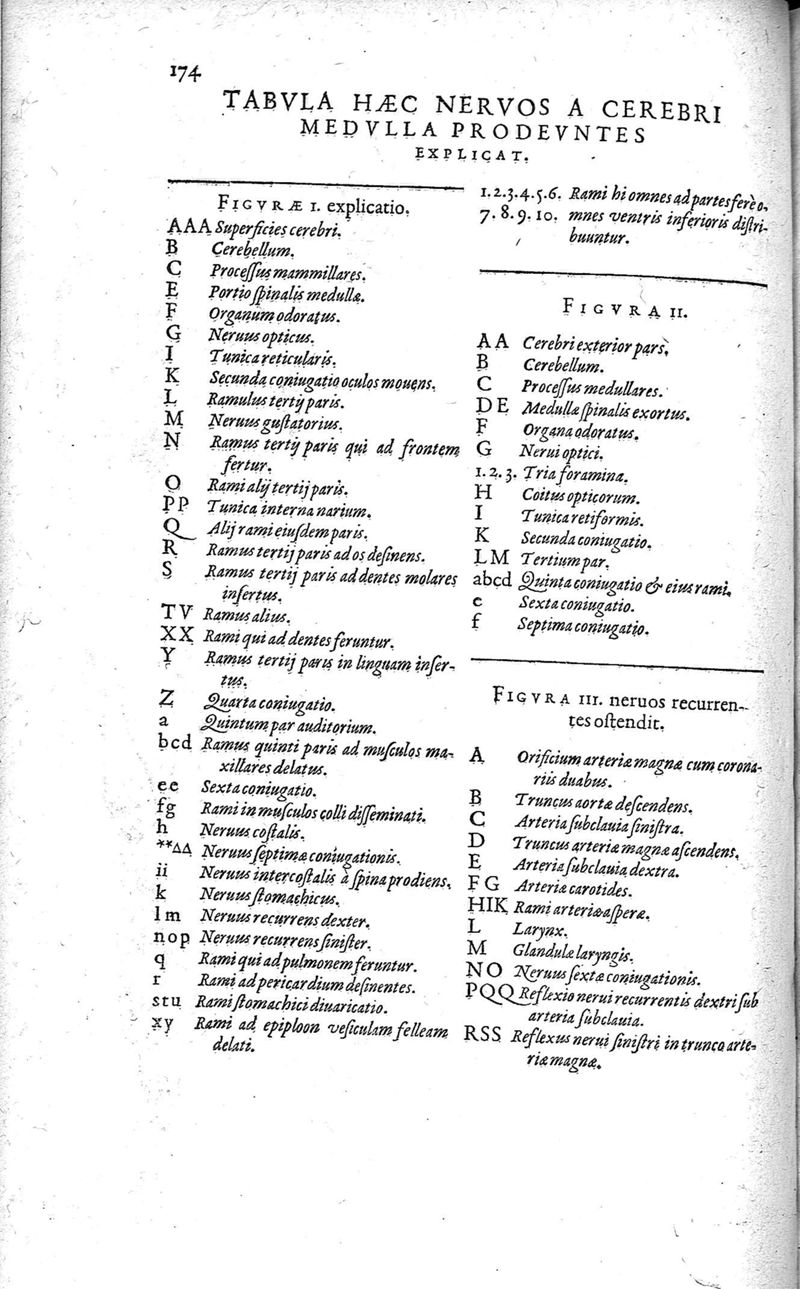 174
TABVLA HÆC NERVOS A CEREBRI
MEDVLLA PRODEVNTES
EXPLICAT.
FIGVRÆ I. explicatio.
AAA Superficies cerebri.
B Cerebellum.
C Proceſſus mammillares.
E Portio ſpinalis medullæ.
F Organum odoratus.
G Neruus opticus.
I Tunica reticularis.
K Secunda coniugatio oculos mouens.
L Ramulus tertij paris.
M Neruus guſtatorius.
N Ramus tertij paris qui ad frontem
fertur.
O Rami alij tertij paris.
PP Tunica interna narium.
Q Alij rami eiuſdem paris.
R Ramus tertij paris ad os deſinens.
S Ramus tertij paris ad dentes molares
inſertus.
TV Ramus alius.
XX Rami qui ad dentes feruntur.
Y Ramus tertij paris in linguam inſer-
tus.
Z Quarta coniugatio.
a Quintum par auditorium.
bcd Ramus quinti paris ad muſculos ma-
xillares delatus.
ee Sexta coniugatio.
fg Rami in muſculos colli diſſeminati.
h Neruus coſtalis.
**ΔΔ Neruus ſeptimæ coniugationis.
ii Neruus intercoſtalis à ſpina prodiens.
k Neruus ſtomachicus.
lm Neruus recurrens dexter.
nop Neruus recurrens ſiniſter.
q Rami qui ad pulmonem feruntur.
r Rami ad pericardium deſinentes.
stu Rami ſtomachici diuaricatio.
xy Rami ad epiploon veſiculam felleam
delati.
1.2.3.4.5.6. Rami hi omnes ad partes ferè o-
7.8.9.10. mnes ventris inferioris diſtri-
buuntur.
FIGVRA II.
AA Cerebri exterior pars.
B Cerebellum.
C Proceſſus medullares.
DE Medullæ ſpinalis exortus.
F Organa odoratus.
G Nerui optici.
1.2.3. Tria foramina.
H Coitus opticorum.
I Tunica retiformis.
K Secunda coniugatio.
LM Tertium par.
abcd Quinta coniugatio & eius rami.
e Sexta coniugatio.
f Septima coniugatio.
FIGVRA III. neruos recurren-
tes oſtendit.
A Orificium arteriæ magnæ cum corona-
riis duabus.
B Truncus aortæ deſcendens.
C Arteria ſubclauia ſiniſtra.
D Truncus arteriæ magnæ aſcendens.
E Arteria ſubclauia dextra.
FG Arteriæ carotides.
HIK Rami arteriæ aſperæ.
L Larynx.
M Glandulæ laryngis.
NO Neruus ſextæ coniugationis.
PQQ Reflexio nerui recurrentis dextri ſub
arteria ſubclauia.
RSS Reflexus nerui ſiniſtri in trunco arte-
riæ magnæ.